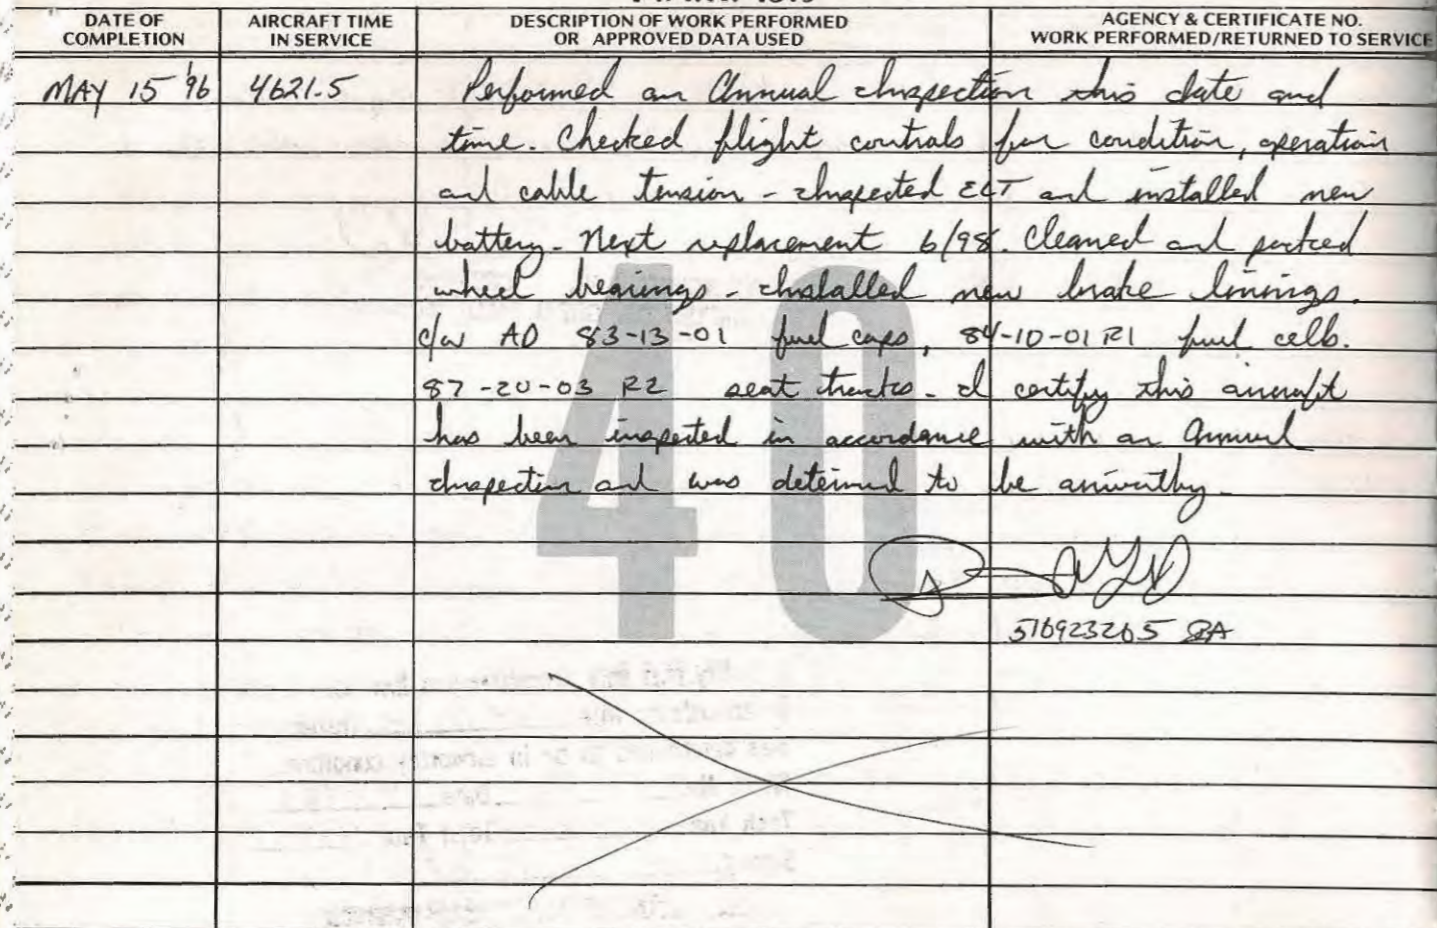 DATE OF COMPLETION
AIRCRAFT TIME IN SERVICE
DESCRIPTION OF WORK PERFORMED OR APPROVED DATA USED
AGENCY & CERTIFICATE NO. WORK PERFORMED/RETURNED TO SERVICE
MAY 15 '96 4621.5 Performed an Annual Inspection this date and
time. Checked flight controls for condition, operation
and cable tension - Inspected ELT and installed new
battery - Next replacement 6/98. Cleaned and packed
wheel bearings - Installed new brake linings.
c/w AD 83-13-01 fuel caps, 84-10-01 R1 fuel cells.
87-20-03 R2 seat tracks - I certify this aircraft
has been inspected in accordance with an Annual
Inspection and was determined to be airworthy -
40
516923265 IA